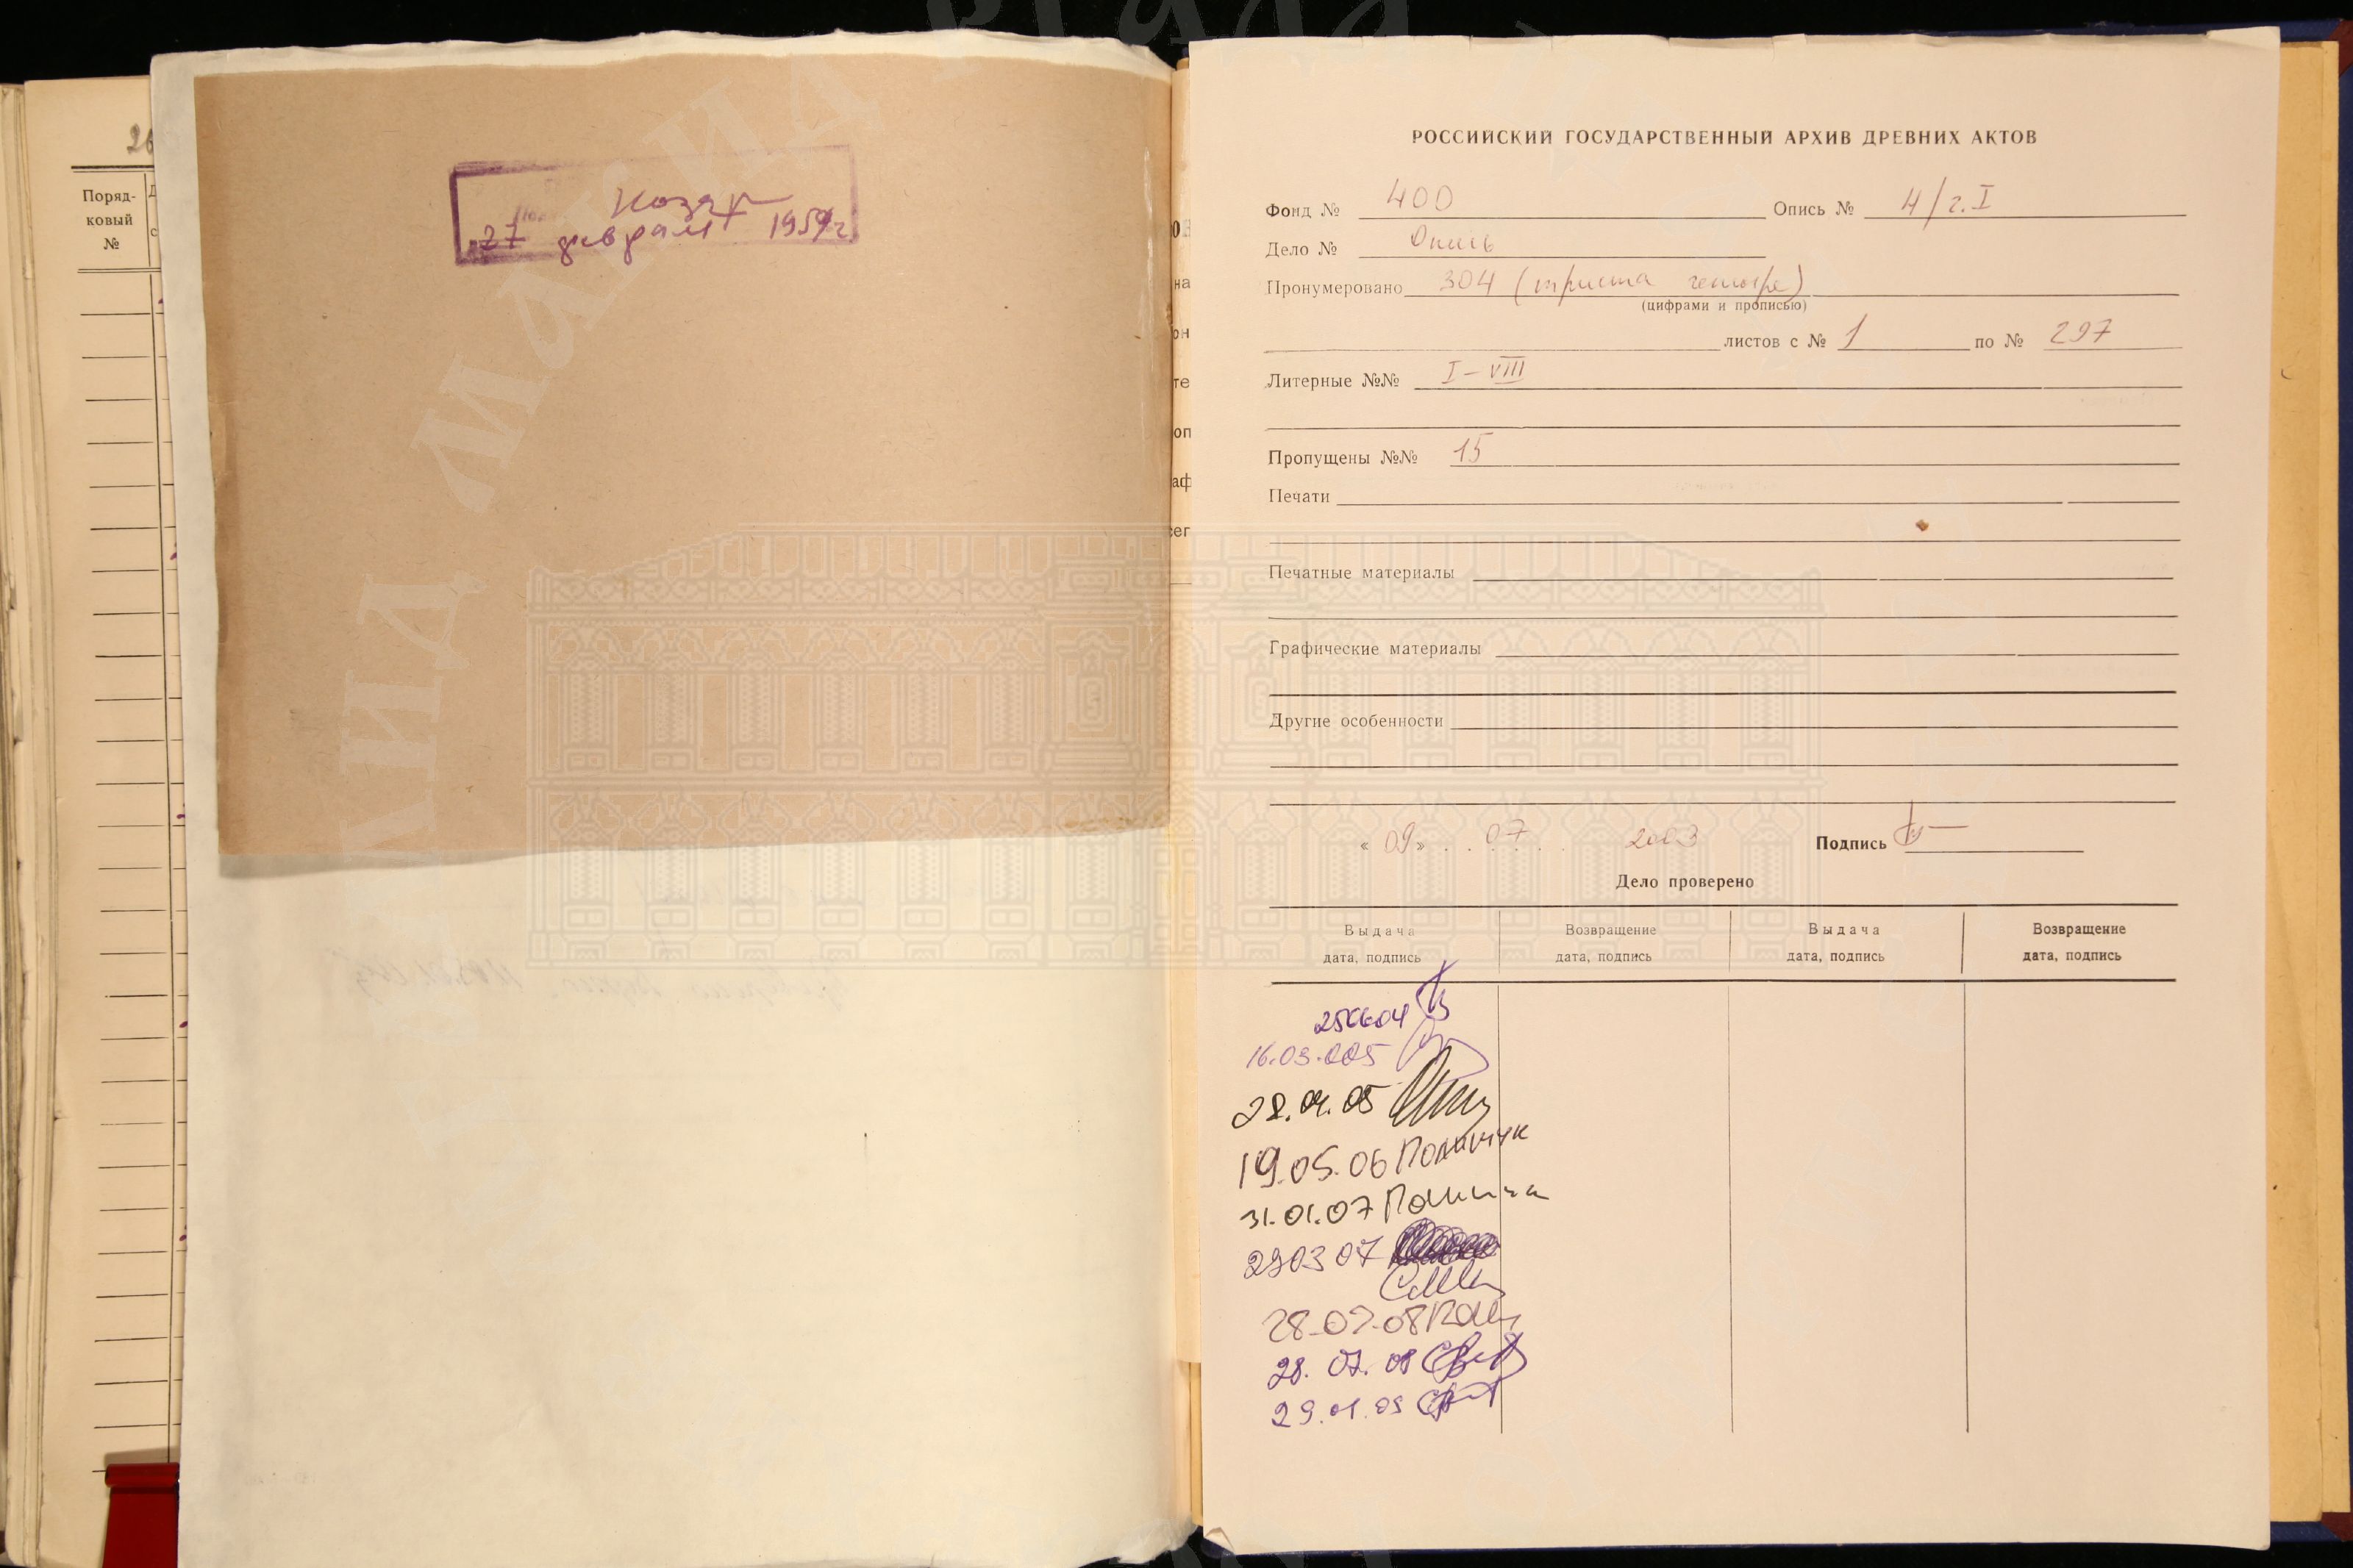 26
Поряд-
ковый
№
27 февраля 1959 г.
РОССИЙСКИЙ ГОСУДАРСТВЕННЫЙ АРХИВ ДРЕВНИХ АКТОВ
Фонд № 400 Опись № 4/г. I
Дело № Опись
Пронумеровано 304 (триста четыре)
(цифрами и прописью)
листов с № 1 по № 297
Литерные №№ I – VIII
Пропущены №№ 15
Печати
Печатные материалы
Графические материалы
Другие особенности
« 09 » . . 07 . . 2003 Подпись
Дело проверено
Выдача Возвращение Выдача Возвращение
дата, подпись дата, подпись дата, подпись дата, подпись
16.03.005
28.04.05
19.05.06 Полищук
31.01.07
290307
28.07.08
29.01.09